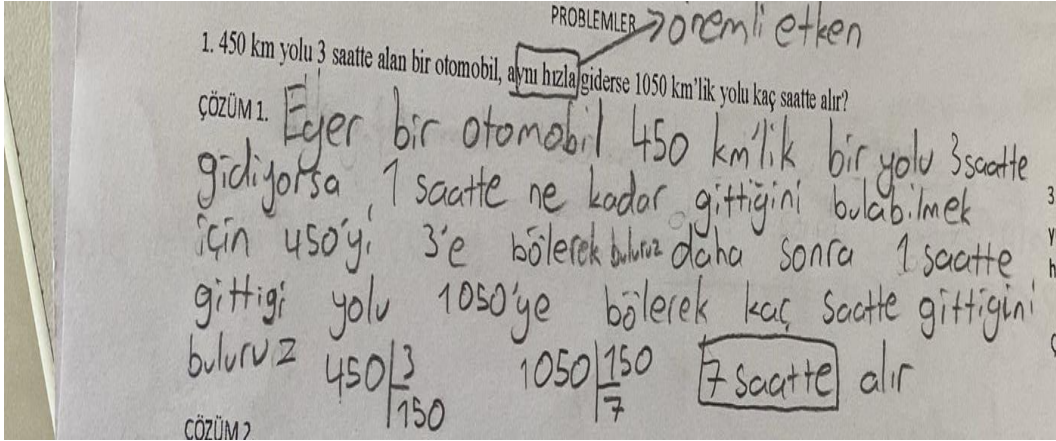 PROBLEMLER → önemli etken
1. 450 km yolu 3 saatte alan bir otomobil, aynı hızla giderse 1050 km'lik yolu kaç saatte alır?
ÇÖZÜM 1. Eğer bir otomobil 450 km'lik bir yolu 3 saatte
gidiyorsa, 1 saatte ne kadar gittiğini bulabilmek
için 450'yi 3'e bölerek buluruz daha sonra 1 saatte
gittigi yolu 1050'ye bölerek kaç saatte gittigini
buluruz 450 | 3 1050 | 150 7 saatte alır
150 7
ÇÖZÜM 2